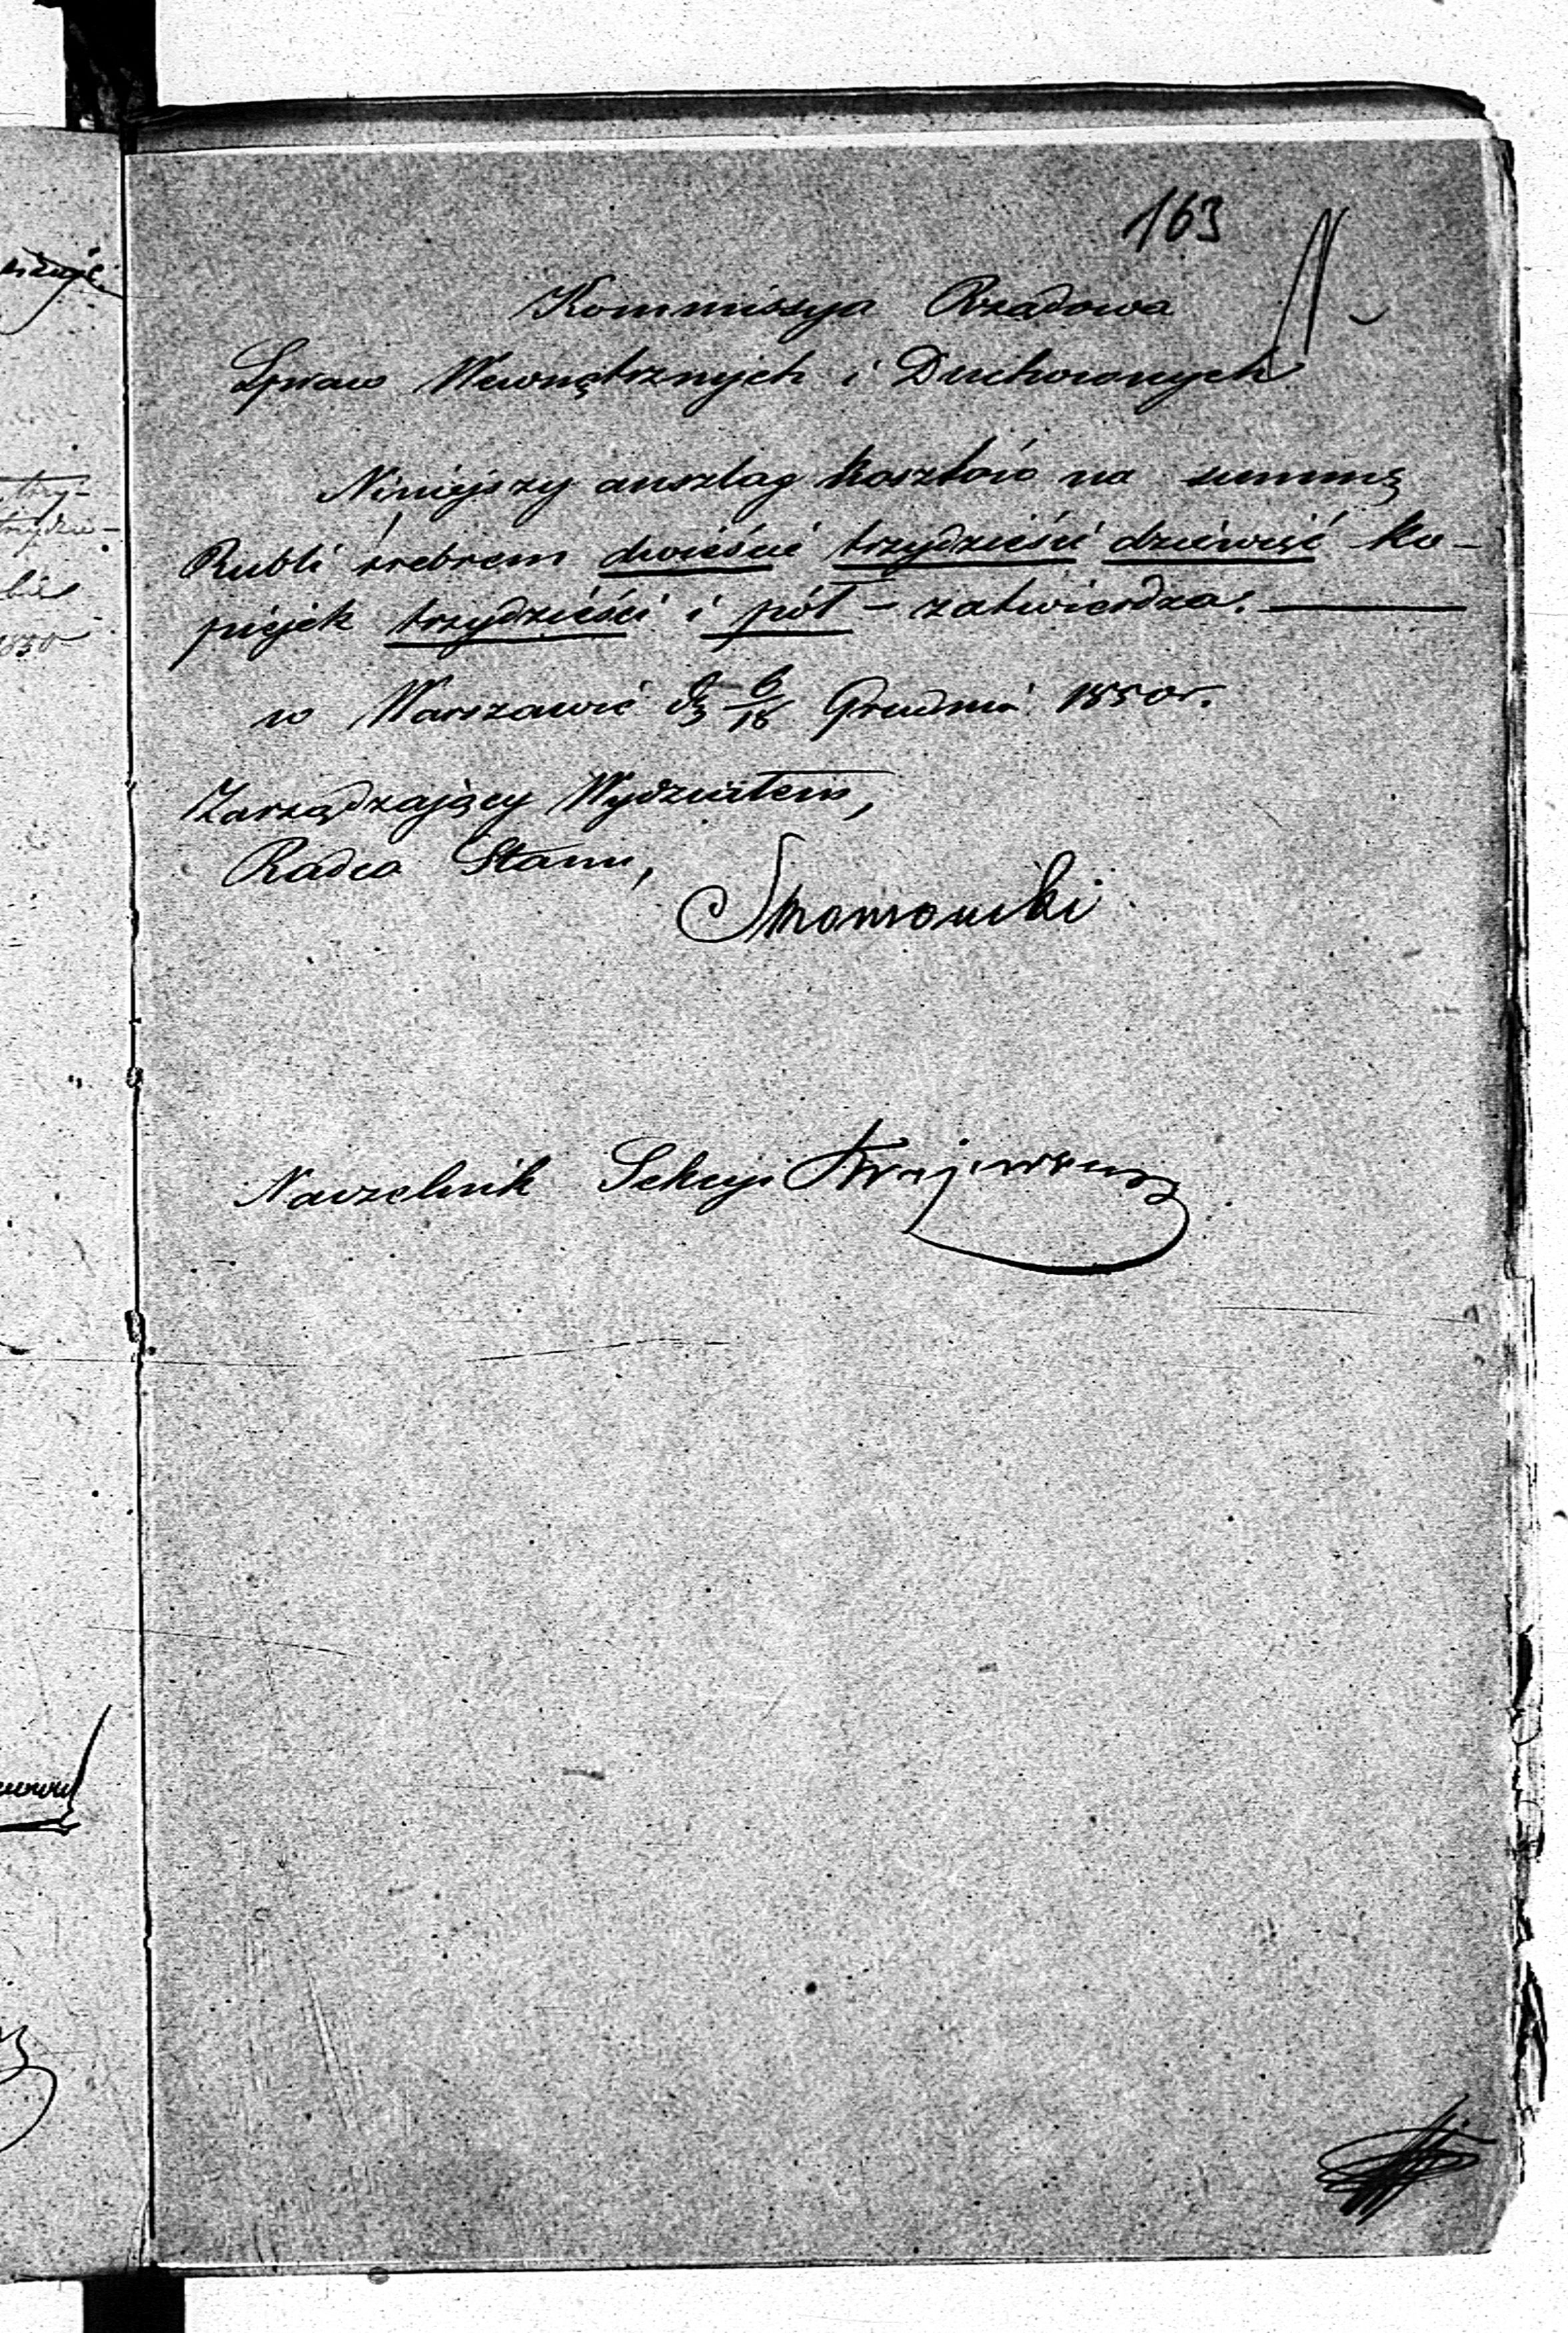 163
Kommissya Rządowa
Spraw Wewnętrznych i Duchownych
Niniejszy anszlag kosztów na summę
Rubli srebrem dwieście trzydzieści dziewięć ko-
piejek trzydzieści i pół – zatwierdza.
w Warszawie d. 6/18 Grudnia 1850 r.
Zarządzający Wydziałem,
Radca Stanu,
Naczelnik Sekcyi Krajewski